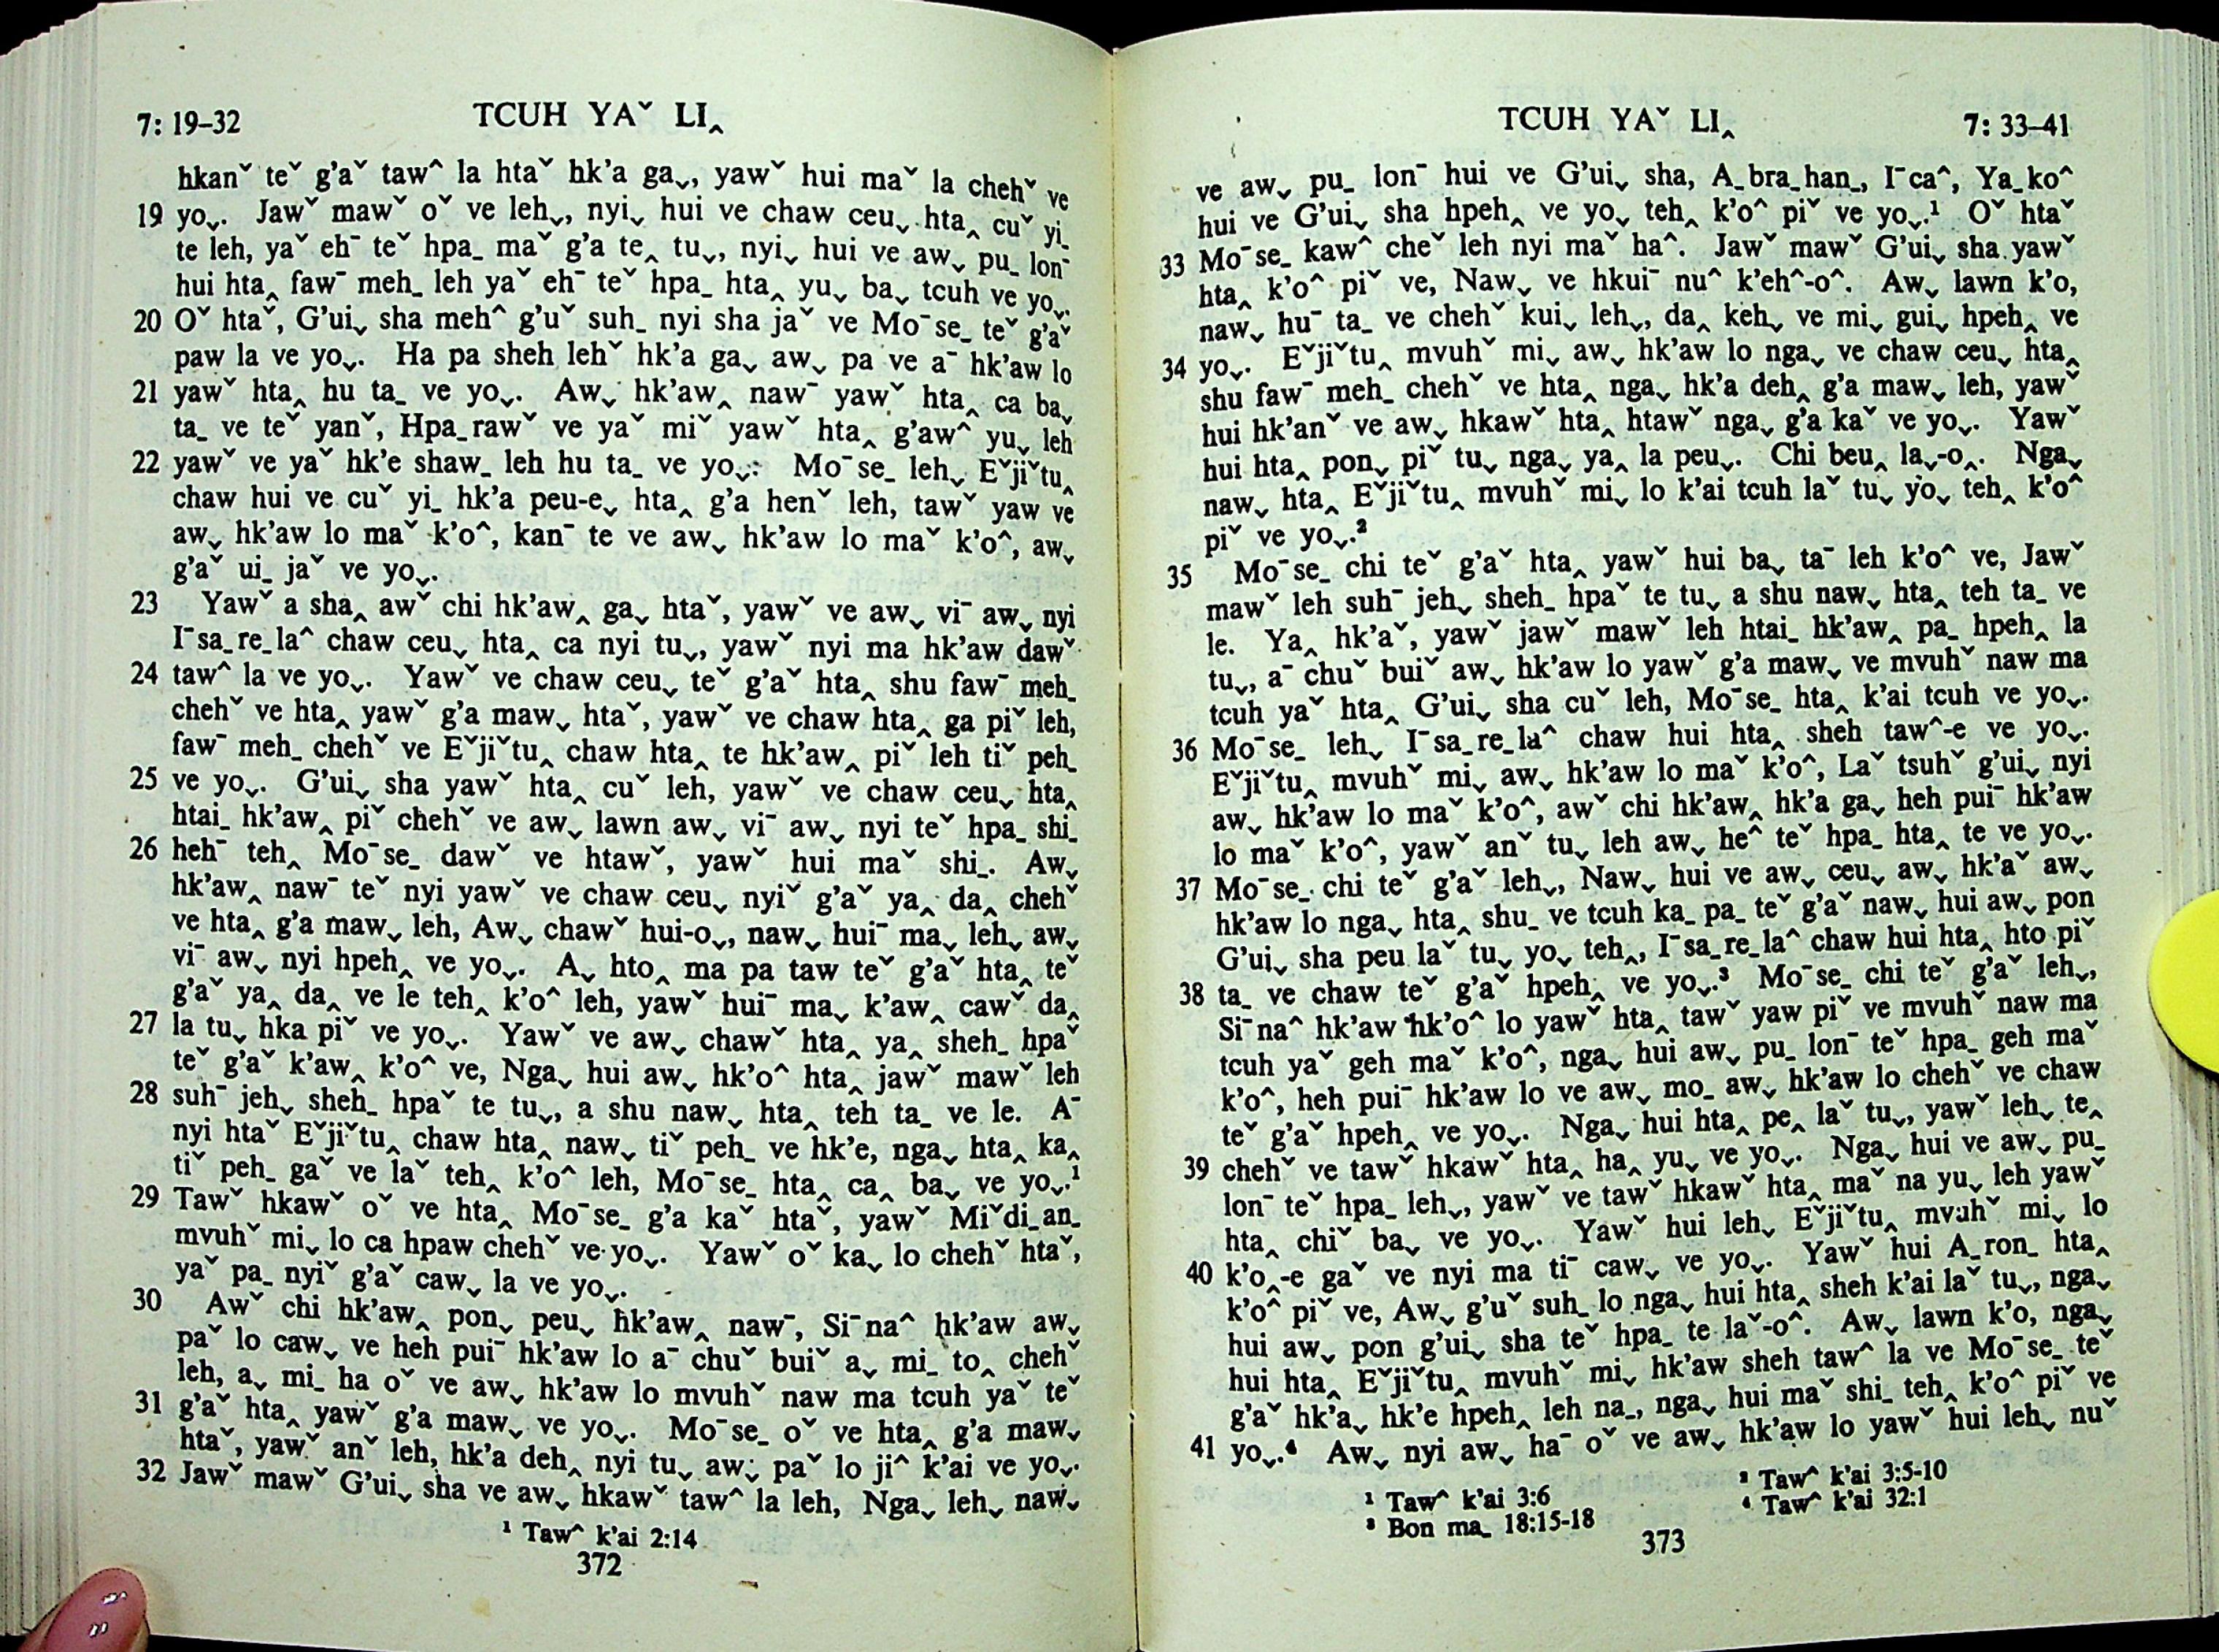 7: 19–32
TCUH YAˇ LI‸
hkanˇ teˇ g'aˇ taw^ la htaˇ hk'a gaˬ, yawˇ hui maˇ la chehˇ ve
19 yoˬ. Jawˇ mawˇ oˇ ve lehˬ, nyiˬ hui ve chaw ceuˬ hta‸ cuˇ yi_
te leh, yaˇ eh¯ teˇ hpa_ maˇ g'a te‸ tuˬ, nyiˬ hui ve awˬ pu_ lon¯
hui hta‸ faw¯ meh_ leh yaˇ eh¯ teˇ hpa_ hta‸ yuˬ baˬ tcuh ve yoˬ.
20 Oˇ htaˇ, G'uiˬ sha meh^ g'uˇ suh_ nyi sha jaˇ ve Mo¯se_ teˇ g'aˇ
paw la ve yoˬ. Ha pa sheh lehˇ hk'a gaˬ awˬ pa ve a¯ hk'aw lo
21 yawˇ hta‸ hu ta_ ve yoˬ. Awˬ hk'aw‸ naw¯ yawˇ hta‸ ca baˬ
ta_ ve teˇ yanˇ, Hpa_rawˇ ve yaˇ miˇ yawˇ hta‸ g'aw^ yuˬ leh
22 yawˇ ve yaˇ hk'e shaw_ leh hu ta_ ve yoˬ: Mo¯se_ lehˬ Eˇjiˇtu‸
chaw hui ve cuˇ yi_ hk'a peu-eˬ hta‸ g'a henˇ leh, tawˇ yaw ve
awˬ hk'aw lo maˇ k'o^, kan¯ te ve awˬ hk'aw lo maˇ k'o^, awˬ
g'aˇ ui_ jaˇ ve yoˬ.
23 Yawˇ a sha‸ awˇ chi hk'aw‸ gaˬ htaˇ, yawˇ ve awˬ vi¯ awˬ nyi
I¯sa_re_la^ chaw ceuˬ hta‸ ca nyi tuˬ, yawˇ nyi ma hk'aw dawˇ
24 taw^ la ve yoˬ. Yawˇ ve chaw ceuˬ teˇ g'aˇ hta‸ shu faw¯ meh_
chehˇ ve hta‸ yawˇ g'a mawˬ htaˇ, yawˇ ve chaw hta‸ ga piˇ leh,
faw¯ meh_ chehˇ ve Eˇjiˇtu‸ chaw hta‸ te hk'aw‸ piˇ leh tiˇ peh_
25 ve yoˬ. G'uiˬ sha yawˇ hta‸ cuˇ leh, yawˇ ve chaw ceuˬ hta‸
htai_ hk'aw‸ piˇ chehˇ ve awˬ lawn awˬ vi¯ awˬ nyi teˇ hpa_ shi_
26 heh¯ teh‸ Mo¯se_ dawˇ ve htawˇ, yawˇ hui maˇ shi_. Awˬ
hk'aw‸ naw¯ teˇ nyi yawˇ ve chaw ceuˬ nyiˇ g'aˇ ya‸ da‸ chehˇ
ve hta‸ g'a mawˬ leh, Awˬ chawˇ hui-oˬ, nawˬ hui¯ maˬ lehˬ awˬ
vi¯ awˬ nyi hpeh‸ ve yoˬ. Aˬ hto‸ ma pa taw teˇ g'aˇ hta‸ teˇ
g'aˇ ya‸ da‸ ve le teh‸ k'o^ leh, yawˇ hui¯ maˬ k'aw‸ cawˇ da‸
27 la tuˬ hka piˇ ve yoˬ. Yawˇ ve awˬ chawˇ hta‸ ya‸ sheh_ hpaˇ
teˇ g'aˇ k'aw‸ k'o^ ve, Ngaˬ hui awˬ hk'o^ hta‸ jawˇ mawˇ leh
28 suh¯ jehˬ sheh_ hpaˇ te tuˬ, a shu nawˬ hta‸ teh ta_ ve le. A¯
nyi htaˇ Eˇjiˇtu‸ chaw hta‸ nawˬ tiˇ peh_ ve hk'e, ngaˬ hta‸ ka‸
tiˇ peh_ gaˇ ve laˇ teh‸ k'o^ leh, Mo¯se_ hta‸ ca‸ baˬ ve yoˬ.¹
29 Tawˇ hkawˇ oˇ ve hta‸ Mo¯se_ g'a kaˇ htaˇ, yawˇ Miˇdi_an_
mvuhˇ miˬ lo ca hpaw chehˇ ve yoˬ. Yawˇ oˇ kaˬ lo chehˇ htaˇ,
yaˇ pa_ nyiˇ g'aˇ cawˬ la ve yoˬ.
30 Awˇ chi hk'aw‸ ponˬ peuˬ hk'aw‸ naw¯, Si¯na^ hk'aw awˬ
paˇ lo cawˬ ve heh pui¯ hk'aw lo a¯ chuˇ buiˇ aˬ mi_ to‸ chehˇ
leh, aˬ mi_ ha oˇ ve awˬ hk'aw lo mvuhˇ naw ma tcuh yaˇ teˇ
31 g'aˇ hta‸ yawˇ g'a mawˬ ve yoˬ. Mo¯se_ oˇ ve hta‸ g'a mawˬ
htaˇ, yawˇ anˇ leh, hk'a deh‸ nyi tuˬ awˬ paˇ lo ji^ k'ai ve yoˬ.
32 Jawˇ mawˇ G'uiˬ sha ve awˬ hkawˇ taw^ la leh, Ngaˬ lehˬ nawˬ
¹ Taw^ k'ai 2:14
372
TCUH YAˇ LI‸
7: 33–41
ve awˬ pu_ lon¯ hui ve G'uiˬ sha, A_bra_han_, I¯ca^, Ya_ko^
hui ve G'uiˬ sha hpeh‸ ve yoˬ teh‸ k'o^ piˇ ve yoˬ.¹ Oˇ htaˇ
33 Mo¯se_ kaw^ cheˇ leh nyi maˇ ha^. Jawˇ mawˇ G'uiˬ sha yawˇ
hta‸ k'o^ piˇ ve, Nawˬ ve hkui¯ nu^ k'eh^-o^. Awˬ lawn k'o,
nawˬ hu¯ ta_ ve chehˇ kuiˬ lehˬ, da‸ kehˬ ve miˬ guiˬ hpeh‸ ve
34 yoˬ. Eˇjiˇtu‸ mvuhˇ miˬ awˬ hk'aw lo ngaˬ ve chaw ceuˬ hta‸
shu faw¯ meh_ chehˇ ve hta‸ ngaˬ hk'a deh‸ g'a mawˬ leh, yawˇ
hui hk'anˇ ve awˬ hkawˇ hta‸ htawˇ ngaˬ g'a kaˇ ve yoˬ. Yawˇ
hui hta‸ ponˬ piˇ tuˬ ngaˬ ya‸ la peuˬ. Chi beu‸ laˬ-o‸. Ngaˬ
nawˬ hta‸ Eˇjiˇtu‸ mvuhˇ miˬ lo k'ai tcuh laˇ tuˬ yoˬ teh‸ k'o^
piˇ ve yoˬ.²
35 Mo¯se_ chi teˇ g'aˇ hta‸ yawˇ hui baˬ ta¯ leh k'o^ ve, Jawˇ
mawˇ leh suh¯ jehˬ sheh_ hpaˇ te tuˬ a shu nawˬ hta‸ teh ta_ ve
le. Ya‸ hk'aˇ, yawˇ jawˇ mawˇ leh htai_ hk'aw‸ pa_ hpeh‸ la
tuˬ, a¯ chuˇ buiˇ awˬ hk'aw lo yawˇ g'a mawˬ ve mvuhˇ naw ma
tcuh yaˇ hta‸ G'uiˬ sha cuˇ leh, Mo¯se_ hta‸ k'ai tcuh ve yoˬ.
36 Mo¯se_ lehˬ I¯sa_re_la^ chaw hui hta‸ sheh taw^-e ve yoˬ.
Eˇjiˇtu‸ mvuhˇ miˬ awˬ hk'aw lo maˇ k'o^, Laˇ tsuhˇ g'uiˬ nyi
awˬ hk'aw lo maˇ k'o^, awˇ chi hk'aw‸ hk'a gaˬ heh pui¯ hk'aw
lo maˇ k'o^, yawˇ anˇ tuˬ leh awˬ he^ teˇ hpa_ hta‸ te ve yoˬ.
37 Mo¯se_ chi teˇ g'aˇ lehˬ, Nawˬ hui ve awˬ ceuˬ awˬ hk'aˇ awˬ
hk'aw lo ngaˬ hta‸ shu_ ve tcuh ka_ pa_ teˇ g'aˇ nawˬ hui awˬ pon
G'uiˬ sha peu laˇ tuˬ yoˬ teh‸, I¯sa_re_la^ chaw hui hta‸ hto piˇ
38 ta_ ve chaw teˇ g'aˇ hpeh‸ ve yoˬ.³ Mo¯se_ chi teˇ g'aˇ lehˬ,
Si¯na^ hk'aw hk'o^ lo yawˇ hta‸ tawˇ yaw piˇ ve mvuhˇ naw ma
tcuh yaˇ geh maˇ k'o^, ngaˬ hui awˬ pu_ lon¯ teˇ hpa_ geh maˇ
k'o^, heh pui¯ hk'aw lo ve awˬ mo_ awˬ hk'aw lo chehˇ ve chaw
teˇ g'aˇ hpeh‸ ve yoˬ. Ngaˬ hui hta‸ pe‸ laˇ tuˬ, yawˇ lehˬ te‸
39 chehˇ ve tawˇ hkawˇ hta‸ ha‸ yuˬ ve yoˬ. Ngaˬ hui ve awˬ pu_
lon¯ teˇ hpa_ lehˬ, yawˇ ve tawˇ hkawˇ hta‸ maˇ na yuˬ leh yawˇ
hta‸ chiˇ baˬ ve yoˬ. Yawˇ hui lehˬ Eˇjiˇtu‸ mvuhˇ miˬ lo
40 k'o‸-e gaˇ ve nyi ma ti¯ cawˬ ve yoˬ. Yawˇ hui A_ron_ hta‸
k'o^ piˇ ve, Awˬ g'uˇ suh_ lo ngaˬ hui hta‸ sheh k'ai laˇ tuˬ, ngaˬ
hui awˬ pon g'uiˬ sha teˇ hpa_ te laˇ-o^. Awˬ lawn k'o, ngaˬ
hui hta‸ Eˇjiˇtu‸ mvuhˇ miˬ hk'aw sheh taw^ la ve Mo¯se_ teˇ
g'aˇ hk'aˬ hk'e hpeh‸ leh na_, ngaˬ hui maˇ shi_ teh‸ k'o^ piˇ ve
41 yoˬ.⁴ Awˬ nyi awˬ ha¯ oˇ ve awˬ hk'aw lo yawˇ hui lehˬ nuˇ
¹ Taw^ k'ai 3:6
² Taw^ k'ai 3:5-10
³ Bon ma_ 18:15-18
⁴ Taw^ k'ai 32:1
373